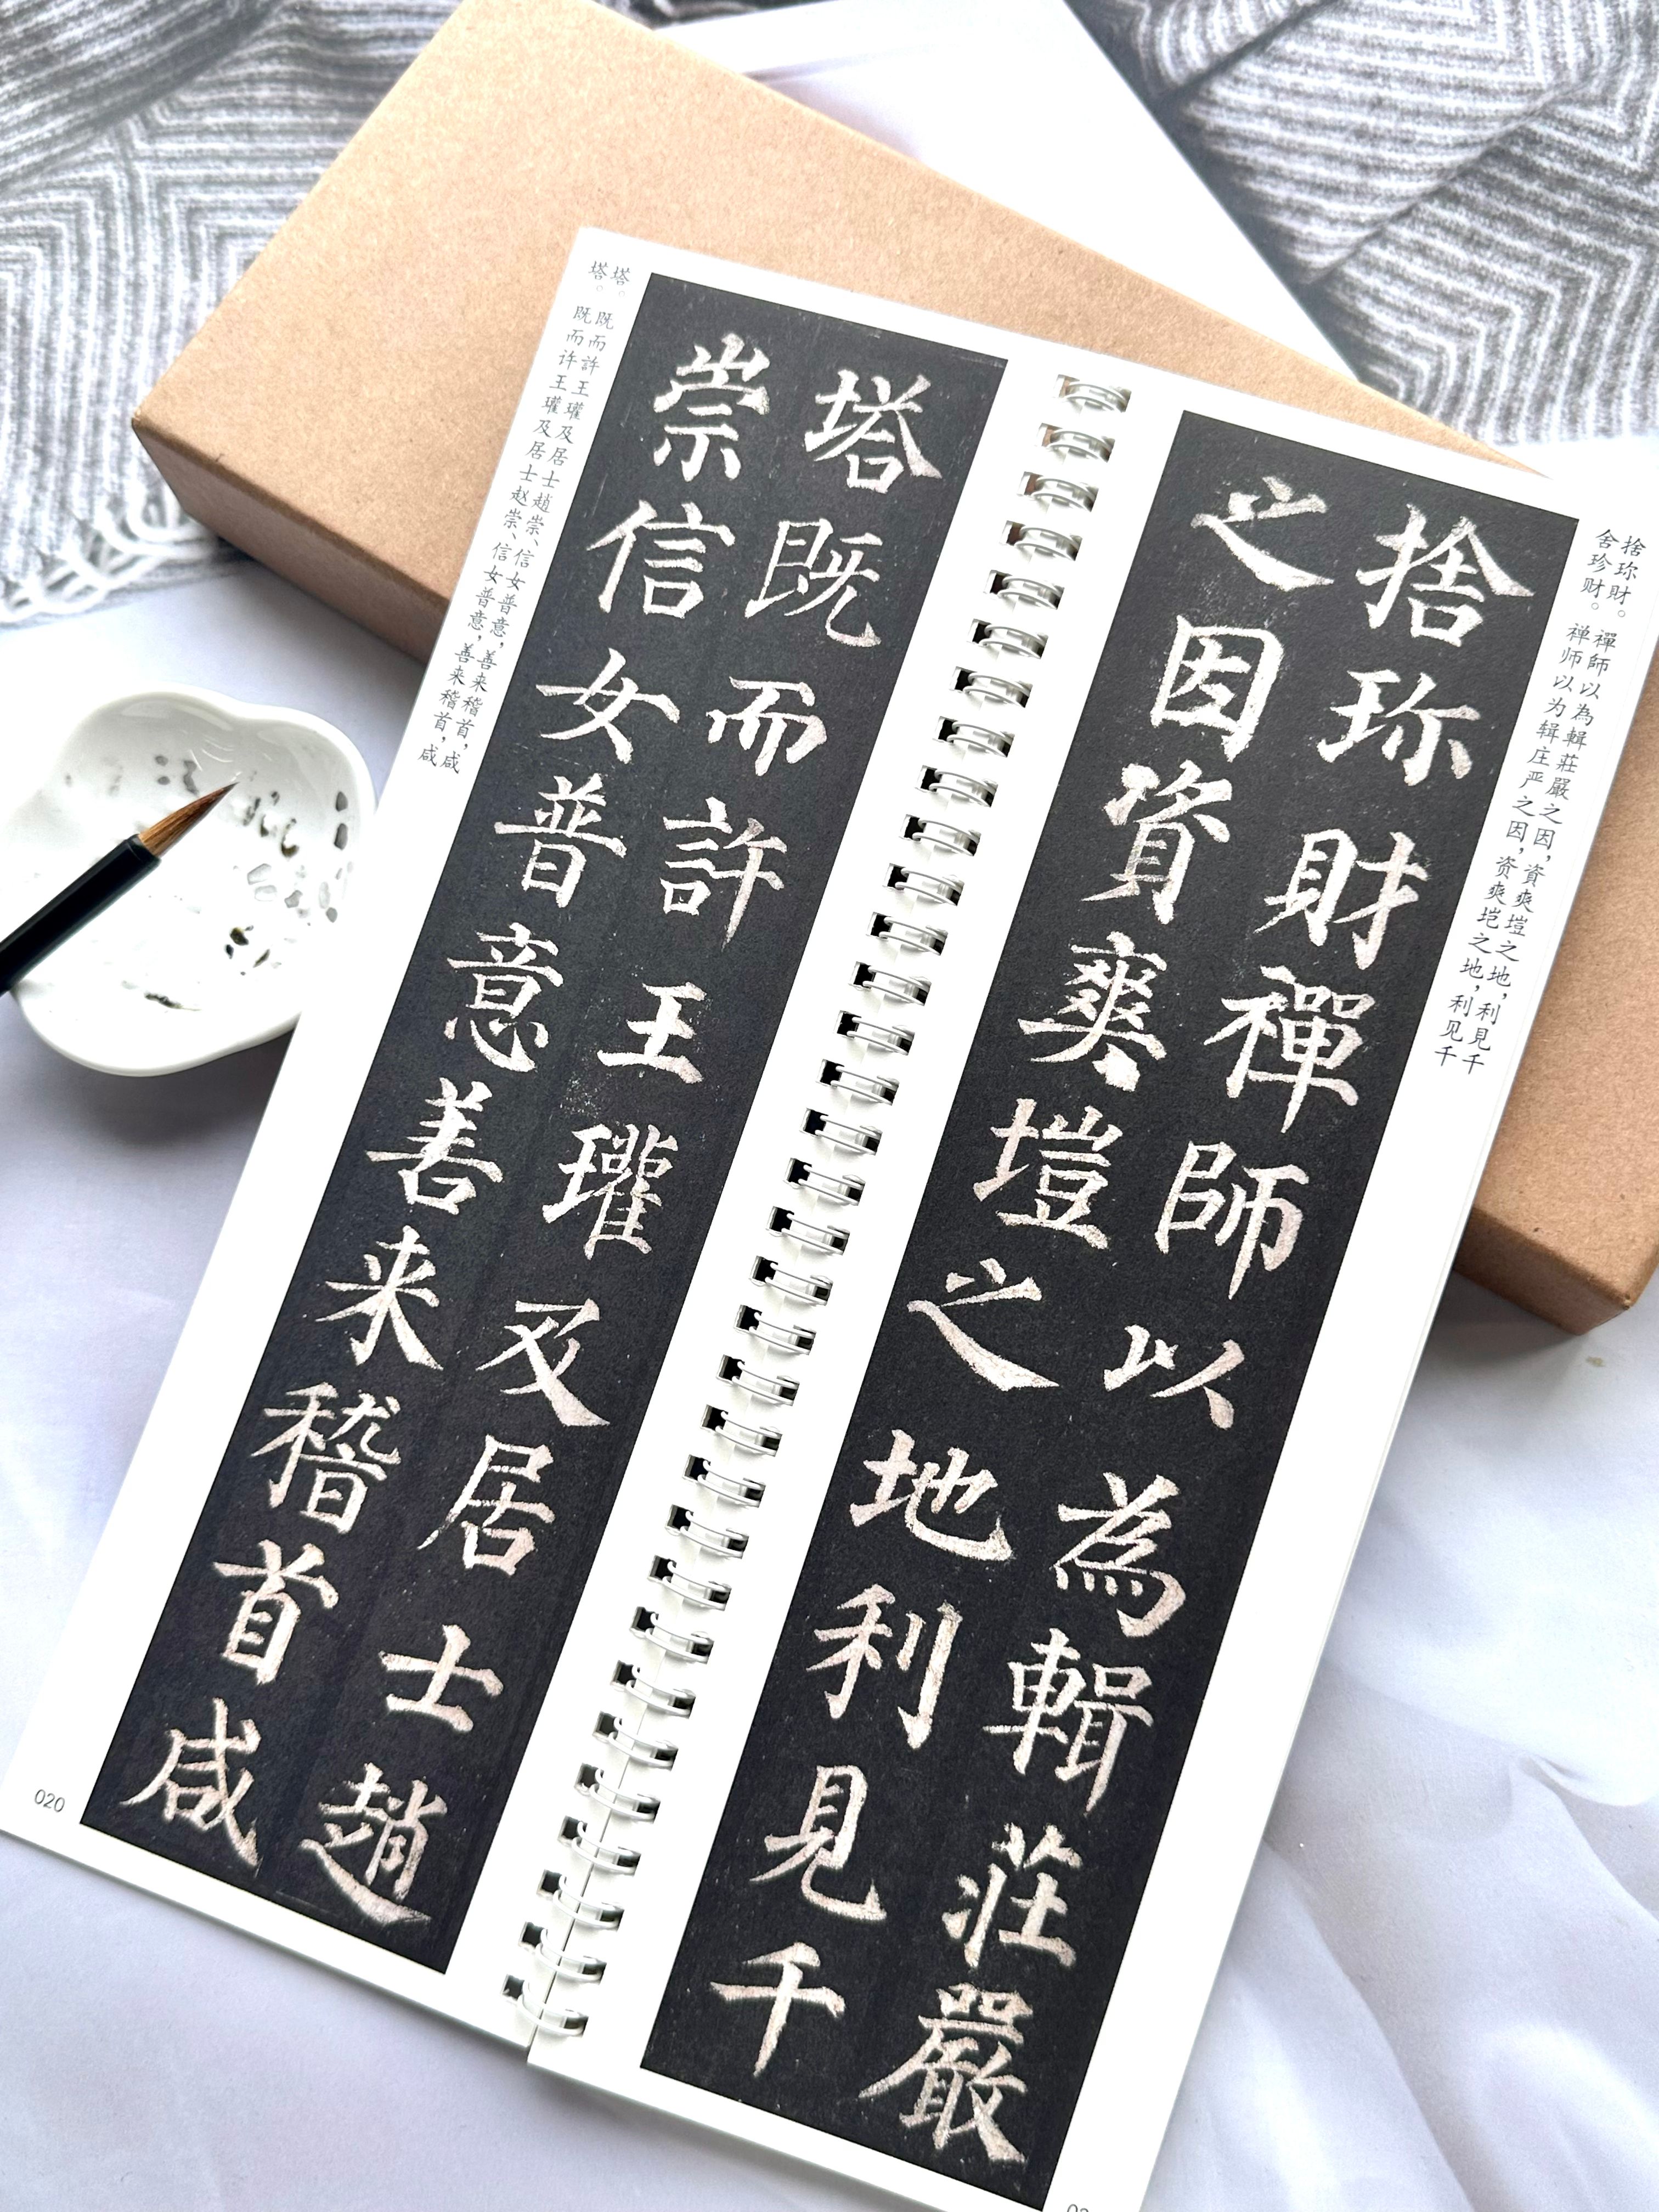 塔既而許王瓘及居士趙
崇信女普意善来稽首咸
塔。既而許王瓘及居士趙崇、信女普意,善来稽首,咸
塔。既而许王瓘及居士赵崇、信女普意,善来稽首,咸
020
捨珎財。禪師以為輯莊嚴之因,資爽塏之地,利見千
舍珍财。禅师以为辑庄严之因,资爽垲之地,利见千
捨珎財禪師以為輯莊嚴
之因資爽塏之地利見千